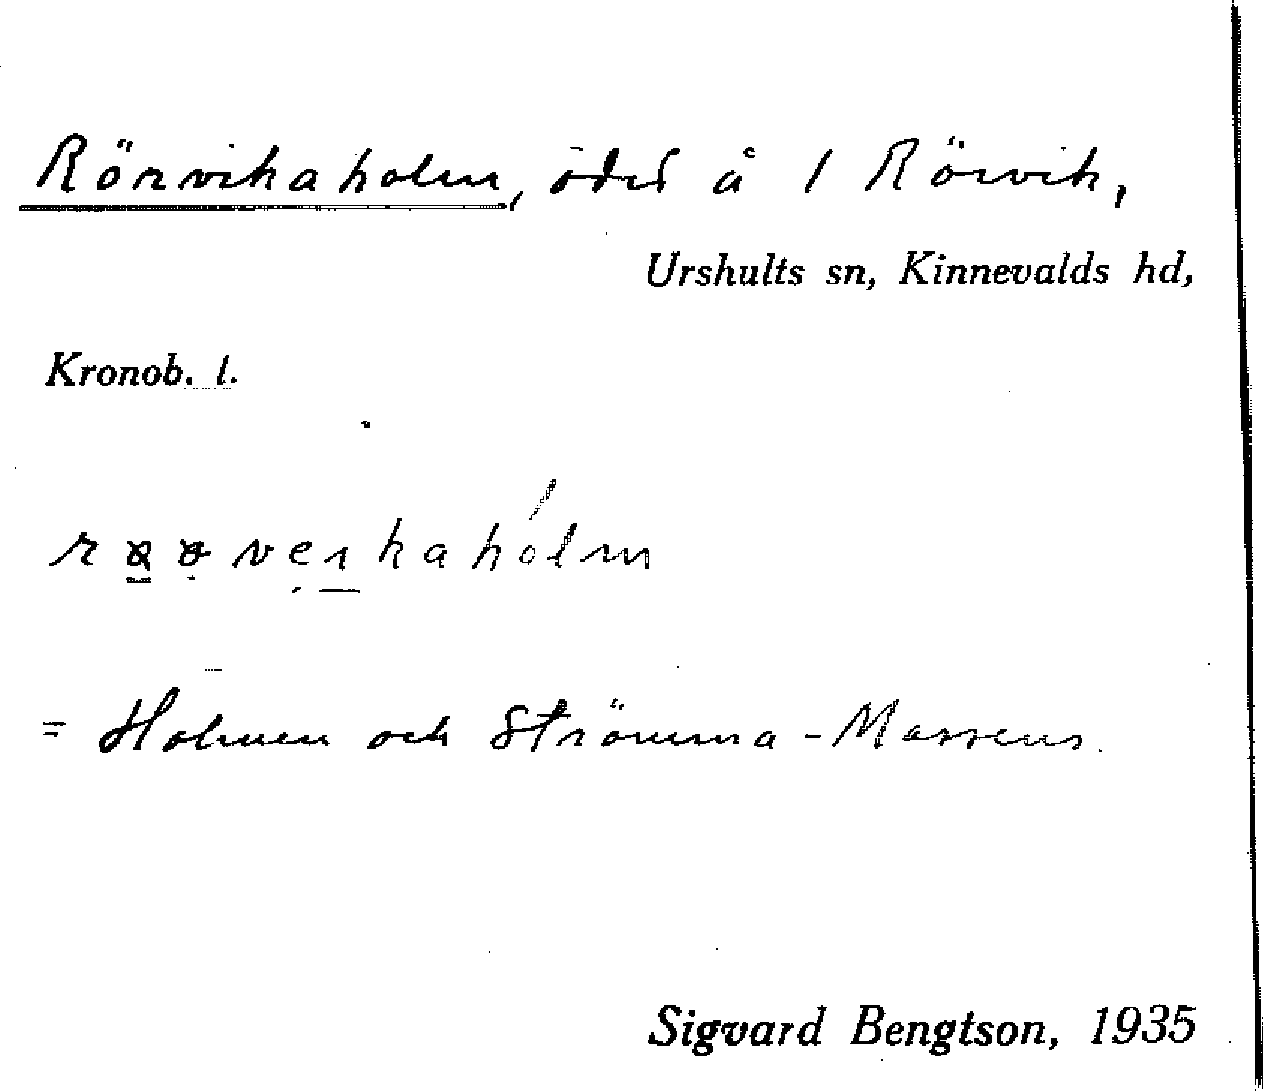 Rörvikaholm, öde å 1 Rörvik,
Urshults sn, Kinnevalds hd,
Kronob. l.
= Holmen och Strömma-Massens.
Sigvard Bengtson, 1935